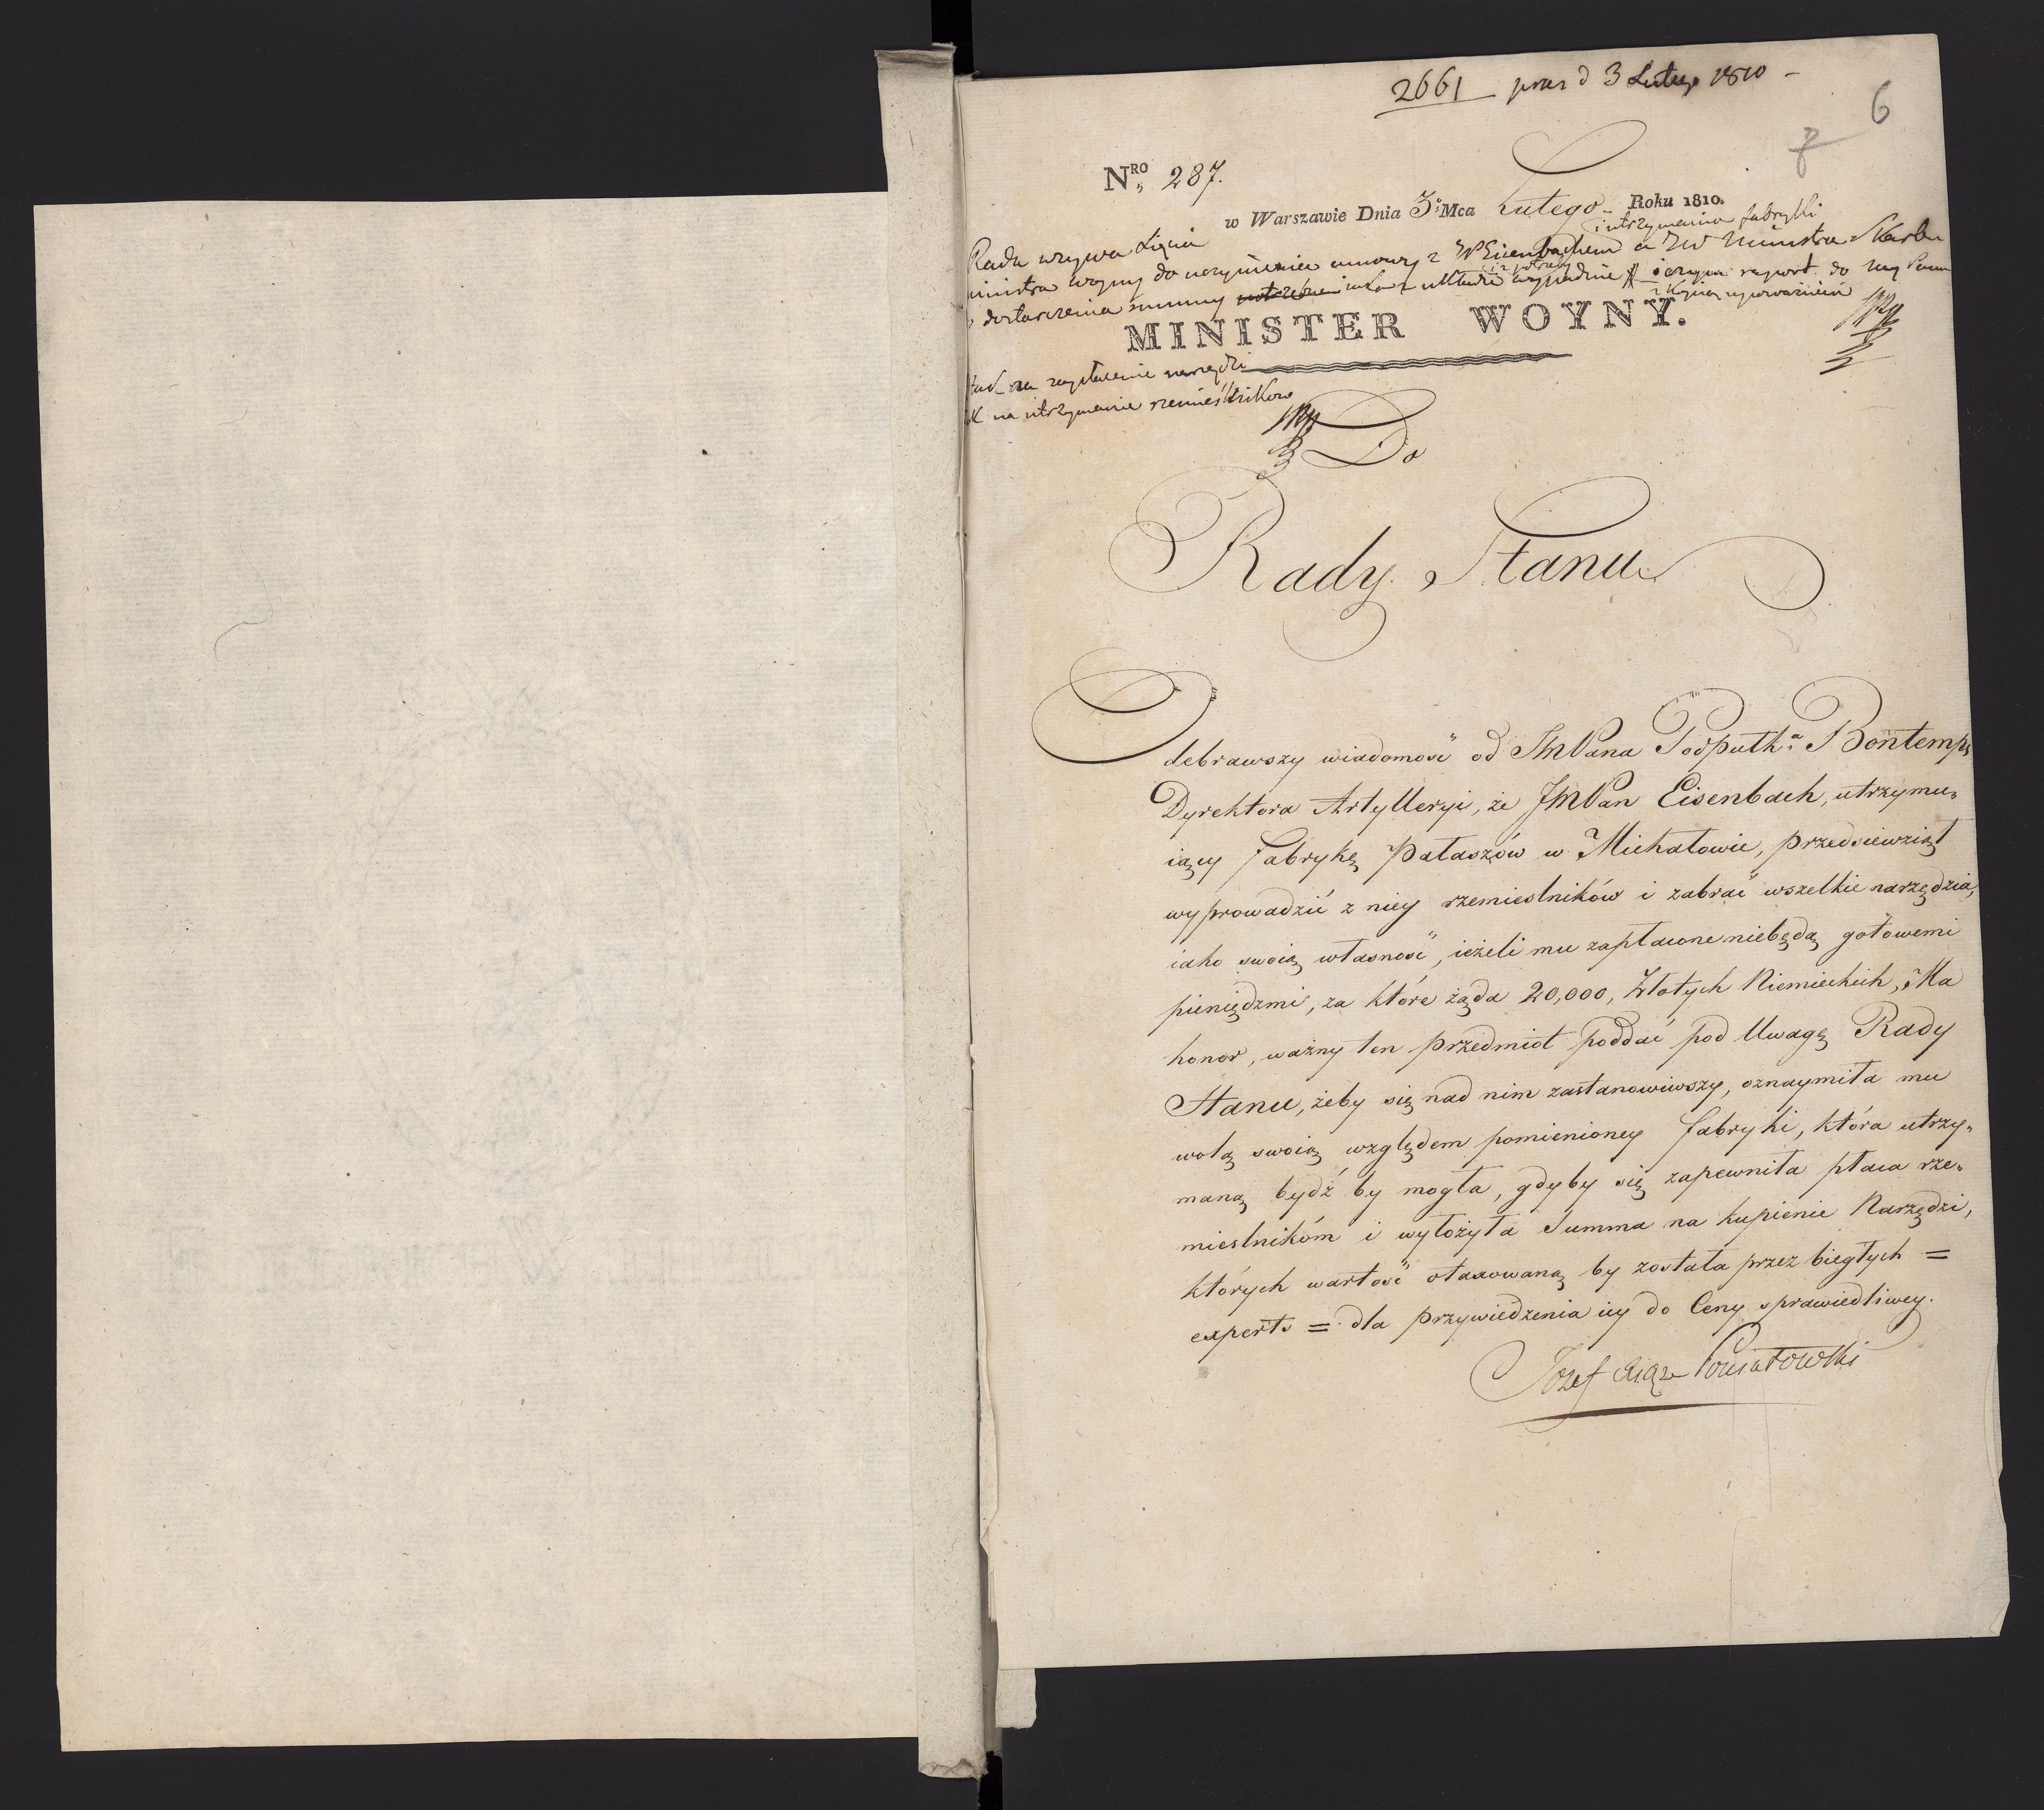 2661 prez d 3 Lutego 1810 –
6
7
Nro 287.
w Warszawie Dnia 3o Mca Lutego – Roku 1810.
i utrzymania fabryki
Rada wzywa Xięcia
ministra woyny do uczynienia umowy z JP Eisenbachem a JW Ministra Skarbu
dostarczenia summy potrzebney iaka z układu wypadnie i o czym raport do Nay Pana
MINISTER WOYNY.
tak na zapłacenie narzędzi
iak na utrzymanie rzemieślnikow
Do
Rady Stanu
Odebrawszy wiadomość od JmPana Podpułka Bontemps
Dyrektora Artylleryi, że JMPan Eisenbach, utrzymu„
iący Fabrykę Pałaszów w Michałowie, przedsiewziął
wyprowadzić z niey rzemieslników i zabrać wszelkie narzędzia,
iako swoią własność, ieżeli mu zapłacone niebędą gotowemi
pieniędzmi, za które żąda 20,000, Złotych Niemieckich, Ma
honor, ważny ten przedmiot poddać pod Uwagę Rady
Stanu, żeby się nad nim zastanowiwszy, oznaymiła mu
wolą swoią względem pomienioney fabryki, która utrzy„
maną bydź by mogła, gdyby się zapewniła płaca rze„
mieslnikóm i wyłożyła Summa na kupienie Narzędzi,
których wartość otaxowaną by została przez biegłych =
experts = dla przywiedzenia iey do Ceny sprawiedliwey.
Jozef Xiąze Poniatowski